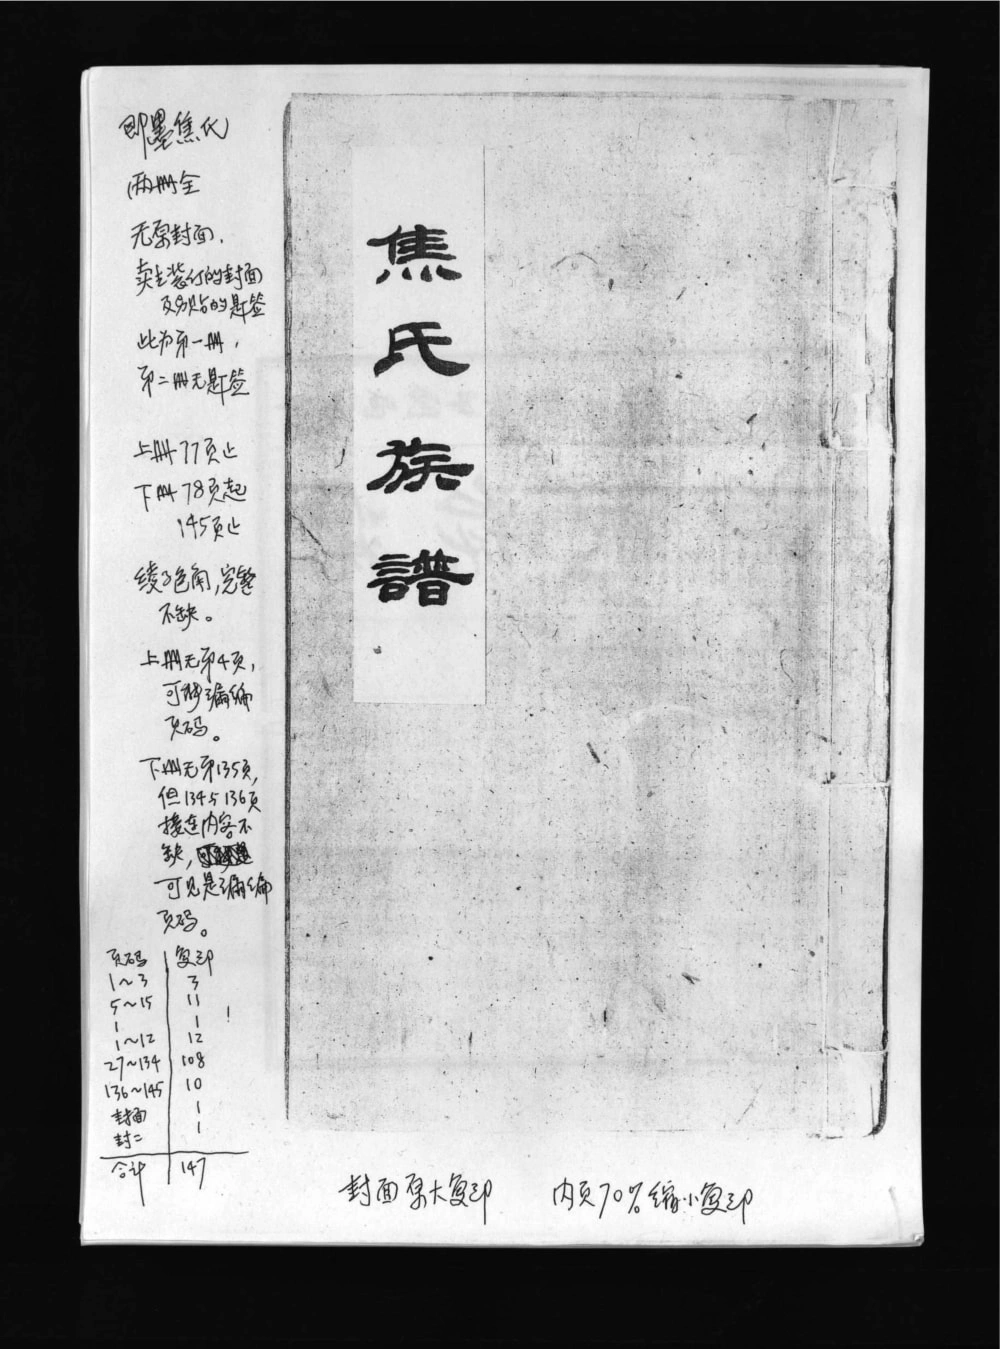 即墨焦氏
两册全
无原封面，
卖主装订的封面
及另贴的题签
此为第一册，
第二册无题签
上册77页止
下册78页起
145页止
绫子包角，完整
不缺。
上册无第4页，
可能漏编
页码。
下册无第135页，
但134与136页
接连内容不
缺，
可见是漏编
页码。
页码 复印
1～3 3
5～15 11
1 1
1～12 12
27～134 108
136～145 10
封面 1
封二 1
合计 147
焦氏族譜
封面原大复印 内页70%缩小复印